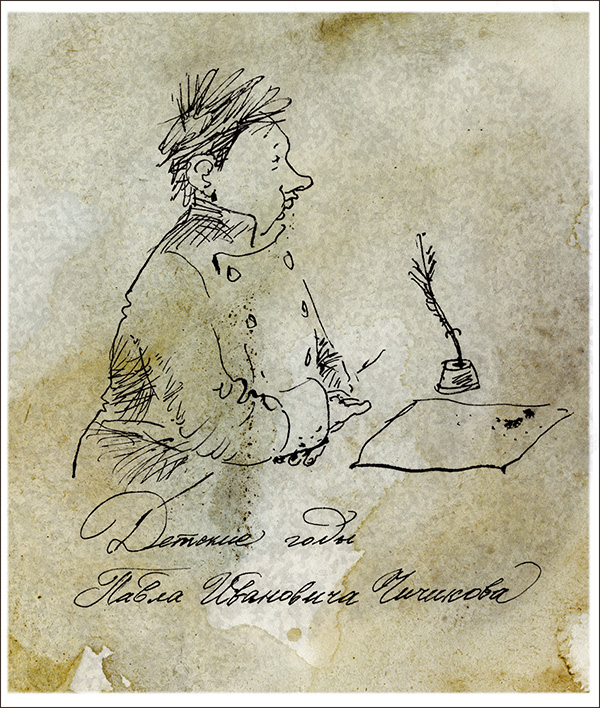 Детские годы
Павла Ивановича Чичикова